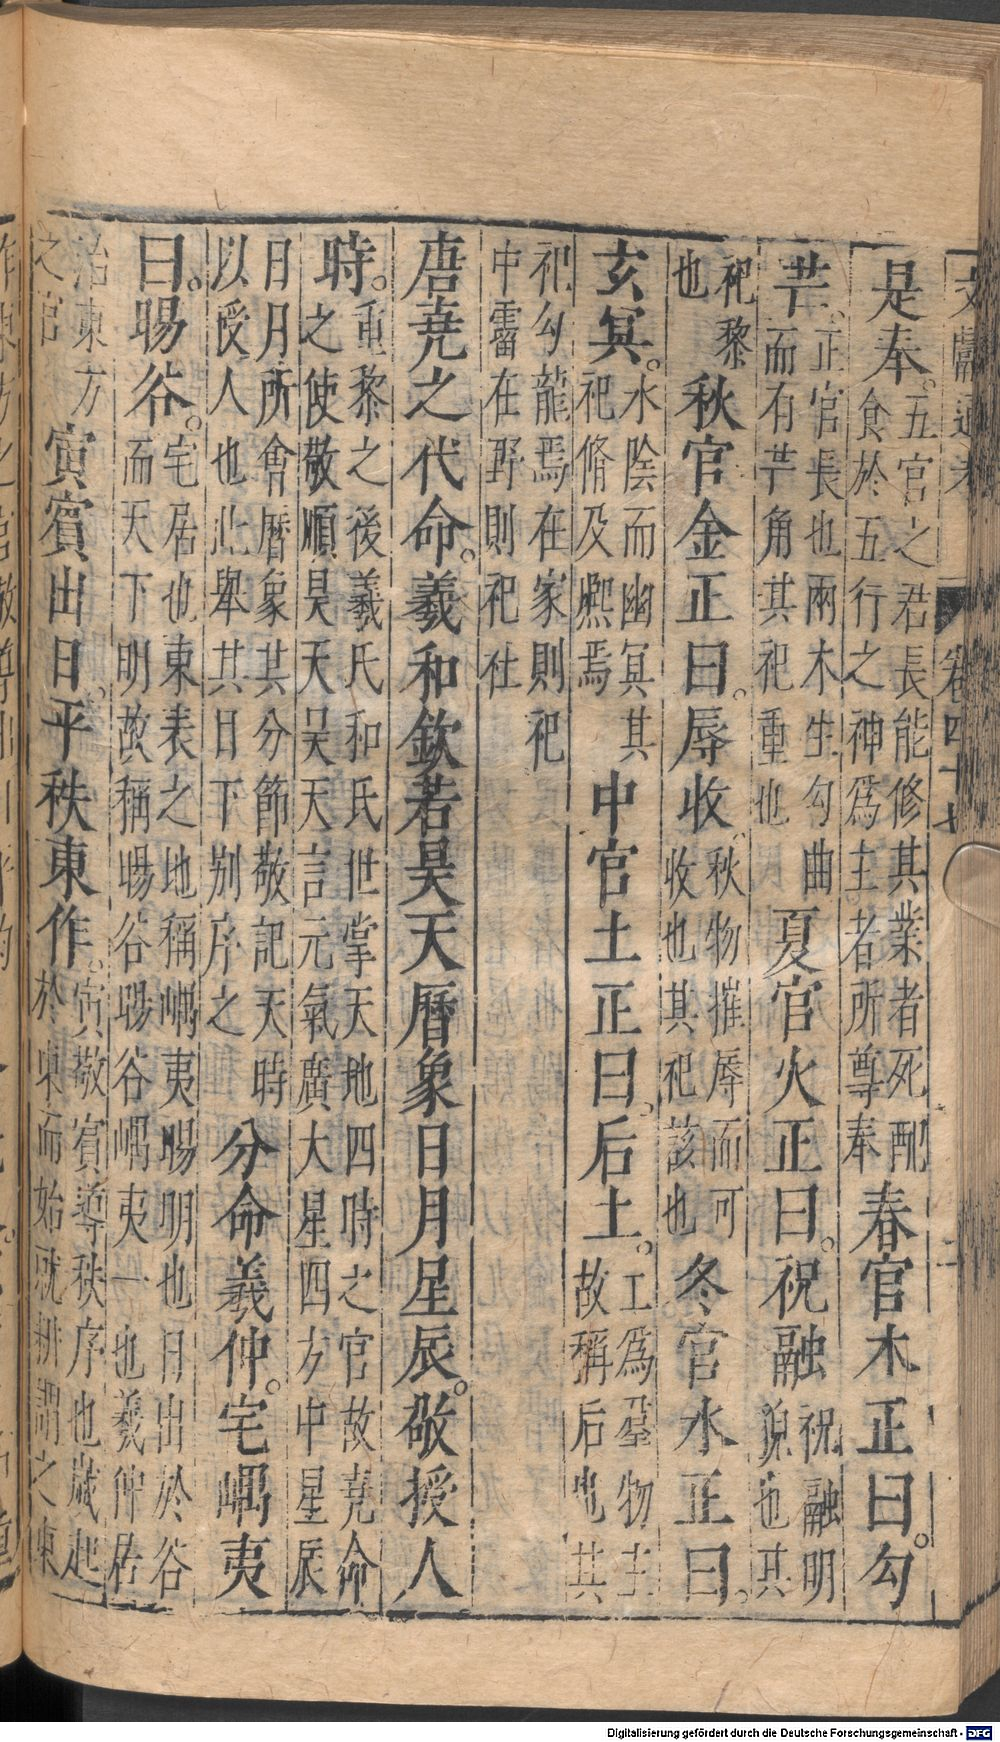 文獻通考 卷四十七 二
是奉五官之君長能修其業者死配
食於五行之神爲主者所尊奉春官木正曰勾
芒正官長也兩木生勾曲
而有芒角其祀重也夏官火正曰祝融祝融明
貌也其
祀黎
也秋官金正曰辱收秋物摧辱而可
收也其祀該也冬官水正曰
玄冥水陰而幽冥其
祀脩及熈焉中官土正曰后土工爲羣物主
故稱后也其
祀勾龍焉在家則祀
中霤在野則祀社
唐堯之代命羲和欽若昊天曆象日月星辰敬授人
時重黎之後羲氏和氏世掌天地四時之官故堯命
之使敬順昊天昊天言元氣廣大星四方中星辰
日月所會曆象其分節敬記天時
以授人也此舉其目下别序之分命羲仲宅嵎夷
曰暘谷宅居也東表之地稱嵎夷暘明也日出於谷
而天下明故稱暘谷暘谷嵎夷一也羲仲居
治東方
之官寅賓出日平秩東作寅敬賓導秩序也歲起
於東而始就耕謂之東
Digitalisierung gefördert durch die Deutsche Forschungsgemeinschaft - DFG